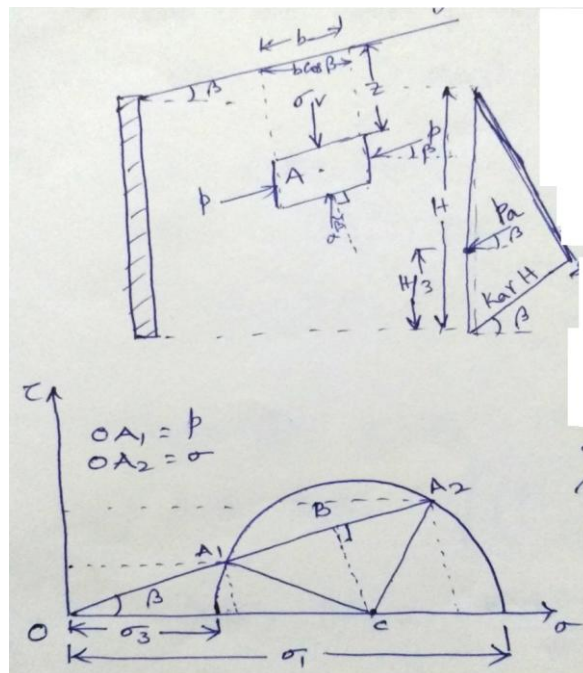 b
b cos β
β
σv
z
p
β
A
p
β
H
Pa
β
H/3
Ka γ H
β
τ
OA₁ = p
OA₂ = σ
A₂
B
A₁
β
O
σ₃
C
σ
σ₁